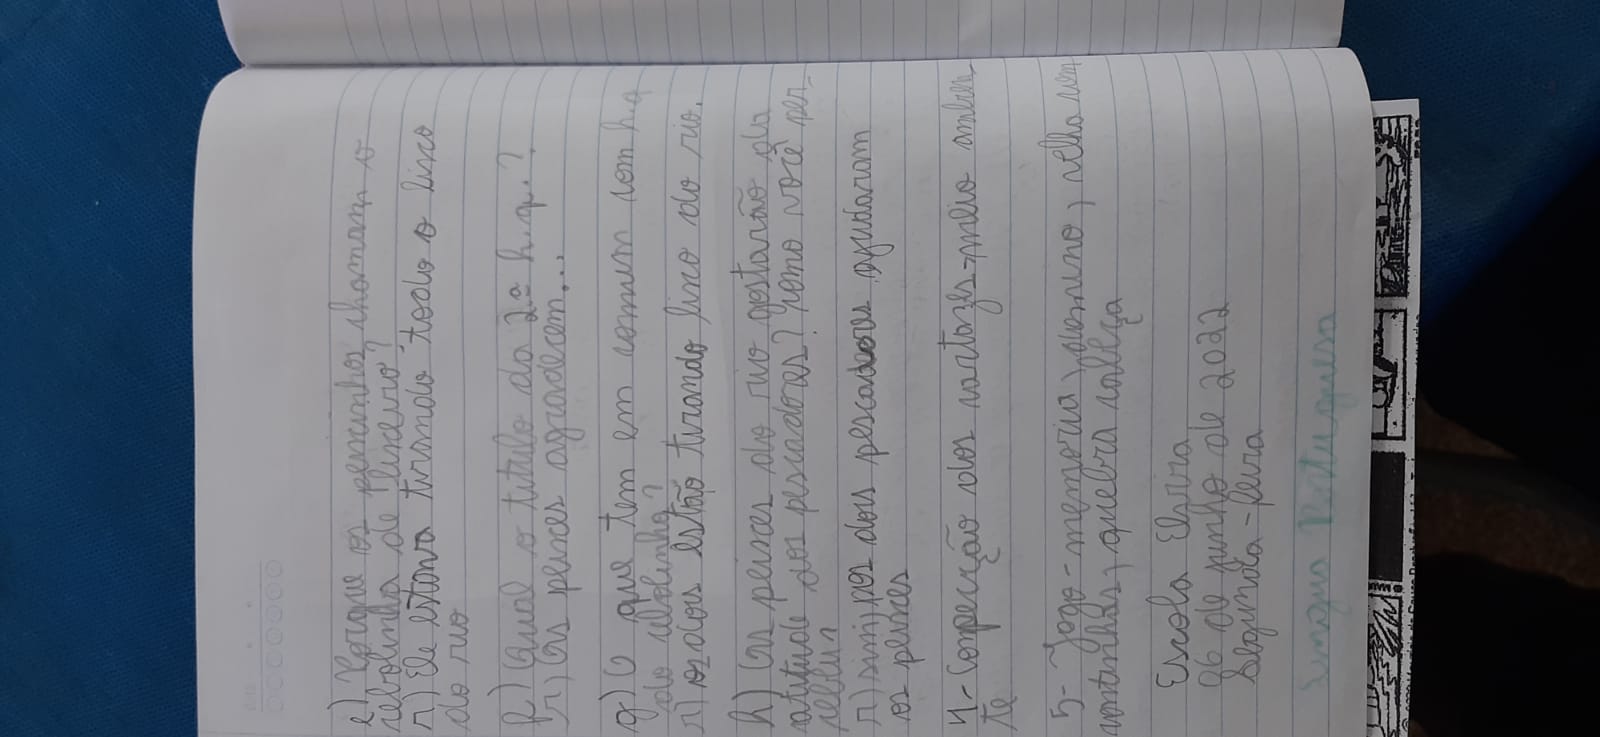 e) Porque os peixinhos chamam o
cebolinha de lixeiro?
r) Ele estava tirando todo o lixo
do rio
f) Qual o titulo da 2ª h.q.?
r) Os peixes agradecem...
g) O que tem em comum com h.q
do cebolinha?
r) os dois estão tirando lixo do rio.
h) Os peixes do rio gostarão da
atitude dos pescadores? Como você per-
cebeu
r) sim, pos dois pescadores ajudaram
os peixes
4- Conpecção dos cartazes-meio ambien-
te
5- Jogo-memoria, dominno,
continhas, quebra cabeça
Escola Elvira
06 de junho de 2022
Segunda-feira
Língua Portuguesa